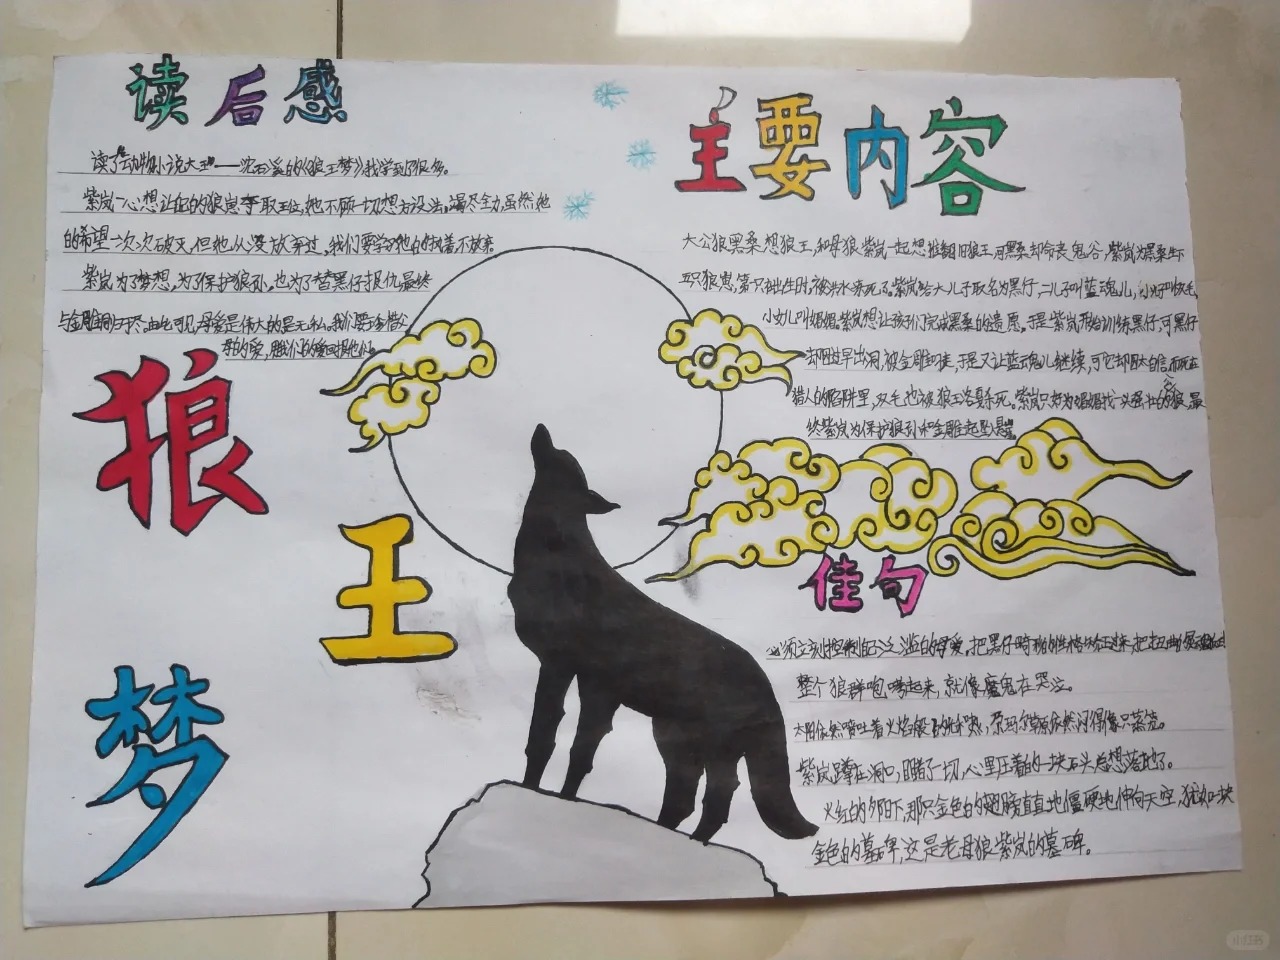 读后感
读了"动物小说大王"——沈石溪的《狼王梦》我学到了很多。
紫岚一心想让自己的狼崽争取王位,她不顾一切想方设法。竭尽全力,虽然她
的希望一次次破灭,但她从没放弃过,我们要学她的执着不放弃
紫岚为了梦想,为了保护狼孙,也为了替黑仔报仇,最终
与金雕同归于尽,由此可见,母爱是伟大的是无私,我们要珍惜父
母的爱,用我们的爱回报他们。
狼
王
梦
主要内容
大公狼黑桑想狼王,和母狼紫岚一起想推翻旧狼王,可黑桑却命丧鬼谷,紫岚为黑桑生下
五只狼崽,第一只刚出生时,被洪水淹死了。紫岚给大儿子取名为黑仔,二儿子叫蓝魂儿,小儿子叫双毛,
小女儿叫媚媚。紫岚想让孩子们完成黑桑的遗愿,于是紫岚开始训练黑仔,可黑仔
却因过早出洞,被金雕叼走,于是又让蓝魂儿继续,可它却因太自信,而死在
猎人的陷阱里,双毛也被狼王洛戛杀死。紫岚只好为媚媚找一头强壮的公狼,最
终紫岚为保护狼孙和金雕一起坠悬崖。
佳句
必须立刻控制自己泛滥的母爱,把黑仔畸形的性格矫正过来,把扭曲的
整个狼群咆嗥起来,就像魔鬼在哭泣。
太阳依然喷吐着火焰般的炽热,尕玛尔草原依然闷得像只蒸笼。
紫岚蹲在洞口,目睹了一切,心里压着的一块石头总想落地了。
火红的夕阳下,那只金色的翅膀直直地僵硬地伸向天空,犹如一块
金色的墓碑,这是老母狼紫岚的墓碑。
小红书